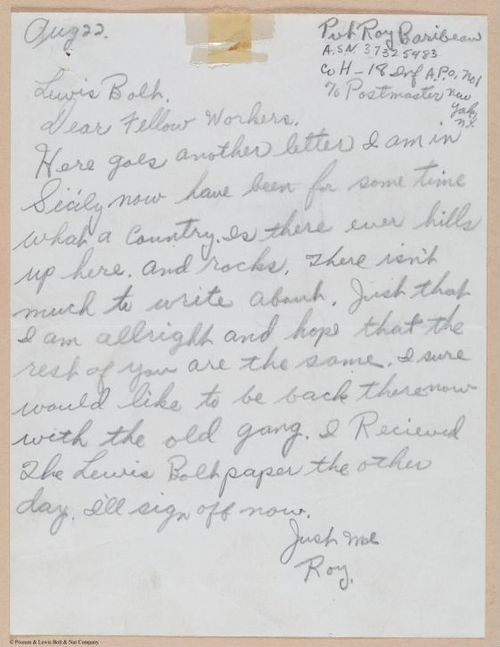 Aug 22.
Pvt Roy Baribeau
A.S.N. 37325483
Co H - 18 Inf A.P.O. No 1
% Postmaster New
York,
N.Y.
Lewis Bolt.
Dear Fellow Workers.
Here goes another letter I am in
Sicily now have been for some time
what a Country. Is there ever hills
up here. And rocks. There isn't
much to write about. Just that
I am allright and hope that the
rest of you are the same. I sure
would like to be back there now
with the old gang. I Recieved
The Lewis Bolt paper the other
day. I'll sign off now.
Just me
Roy.
© Pioneer & Lewis Bolt & Nut Company